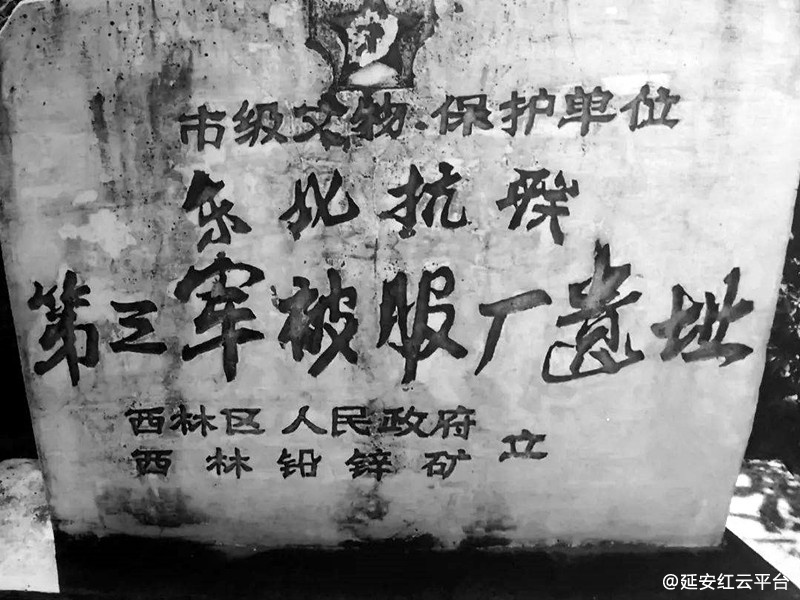 市级文物·保护单位
东北抗联
第三军被服厂遗址
西林区人民政府
西林铅锌矿 立
@延安红云平台